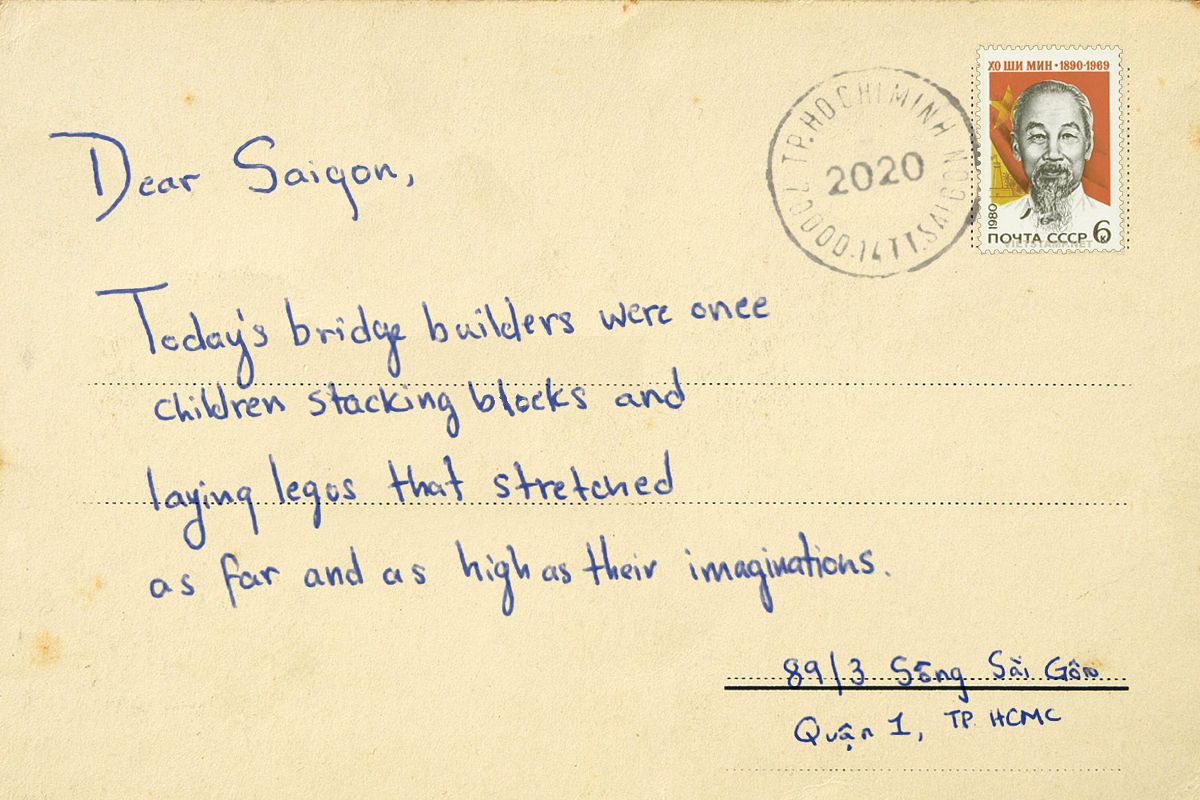 ХО ШИ МИН • 1890-1969
TP. HO CHI MINH
2020
700000.14TT.SAIGON
1980
ПОЧТА СССР 6к
VIETSTAMP.NET
Dear Saigon,
Today's bridge builders were once
children stacking blocks and
laying legos that stretched
as far and as high as their imaginations.
89/3 Sông Sài Gòn
Quận 1, TP. HCMC